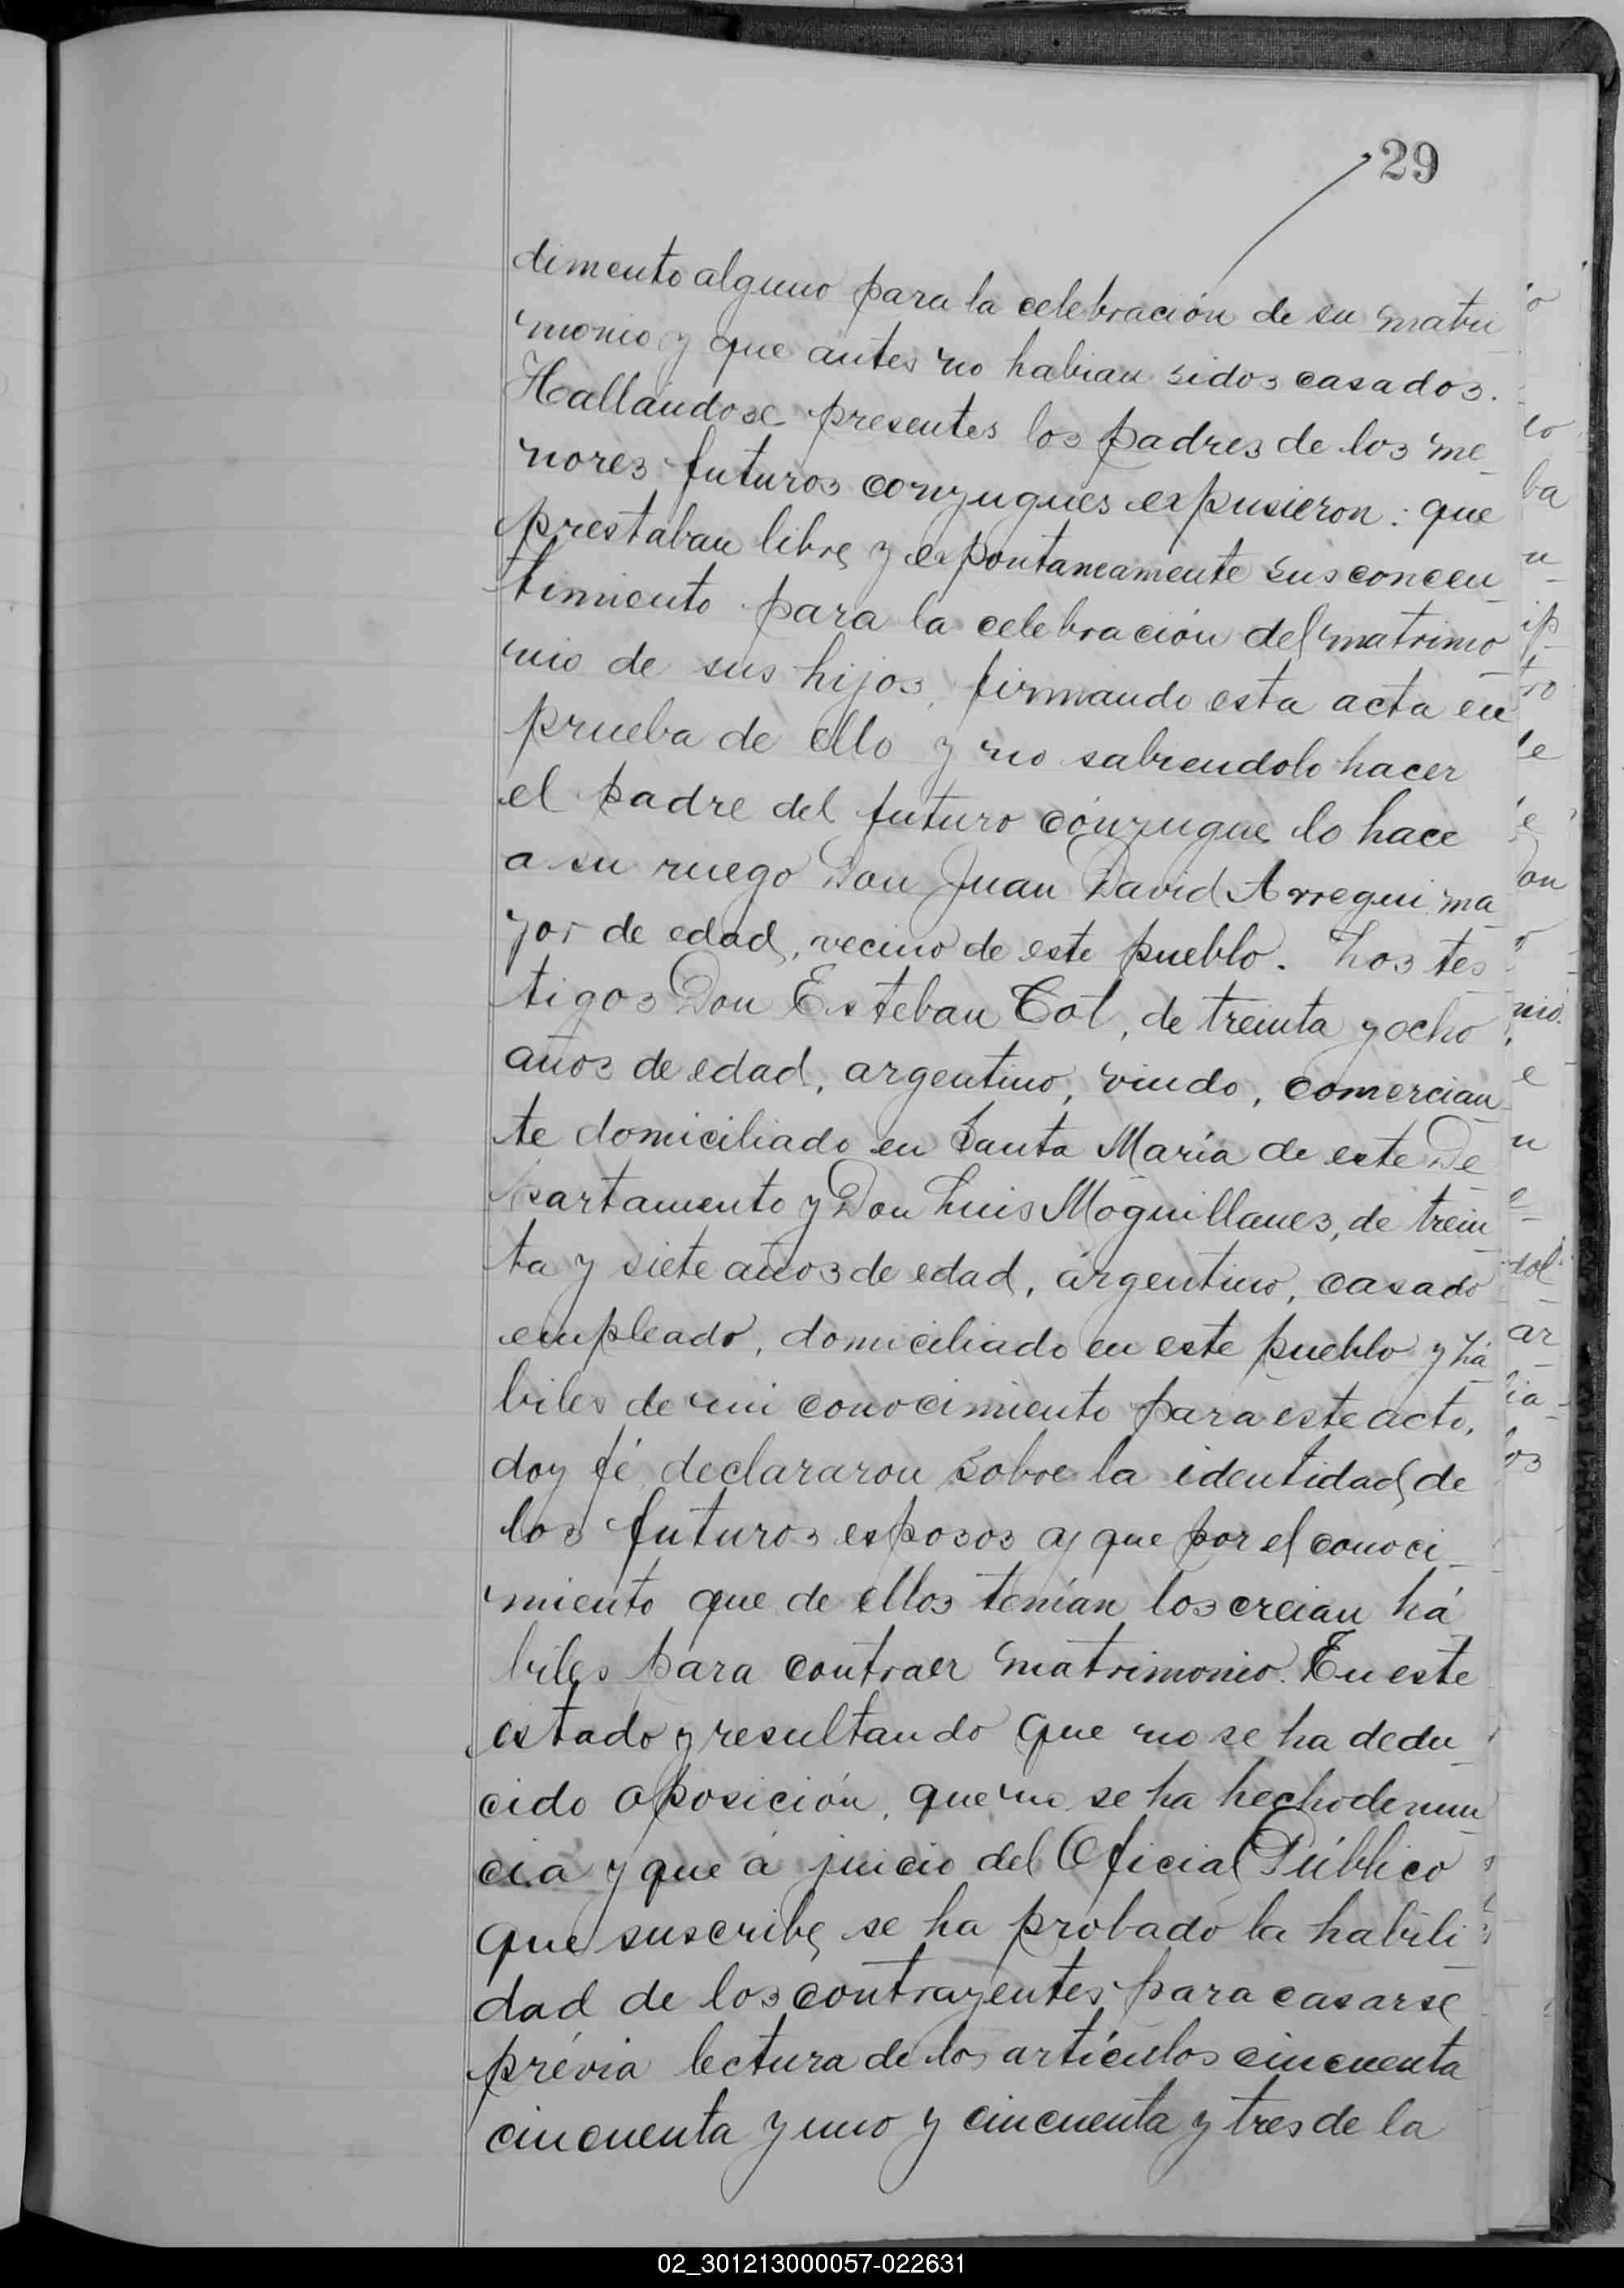 29
dimento alguno para la celebración de su matri
monio y que antes no habian sidos casados.
Hallándose presentes los padres de los me_
nores futuros conyugues expusieron: que
prestaban libre y expontaneamente sus concen_
timiento para la celebración del matrimo_
nio de sus hijos, firmando esta acta en
prueba de ello y no sabiendolo hacer
el padre del futuro cónyugue lo hace
a su ruego Don Juan David Arregui ma_
yor de edad, vecino de este pueblo. Los tes_
tigos Don Esteban Cot, de treinta y ocho
años de edad, argentino, viudo, comercian_
te domiciliado en Santa María de este De_
partamento y Don Luis Moguillanes, de trein_
ta y siete años de edad, argentino, casado
empleado, domiciliado en este pueblo y há_
biles de mi conocimiento para este acto,
doy fé, declararon sobre la identidad de
los futuros esposos y que por el conoci_
miento que de ellos tenían los creian há
biles para contraer matrimonio. En este
estado y resultando que no se ha dedu_
cido oposición, que no se ha hecho denun_
cia y que á juicio del Oficial Público
que suscribe se ha probado la habili_
dad de los contrayentes para casarse
prévia lectura de los artículos cincuenta
cincuenta y uno y cincuenta y tres de la
02_301213000057-022631